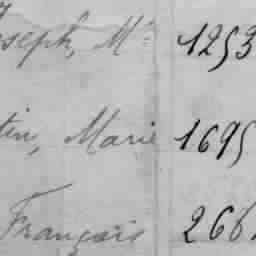 Joseph, Mie 1253
tin, Marie 1695
Français 266